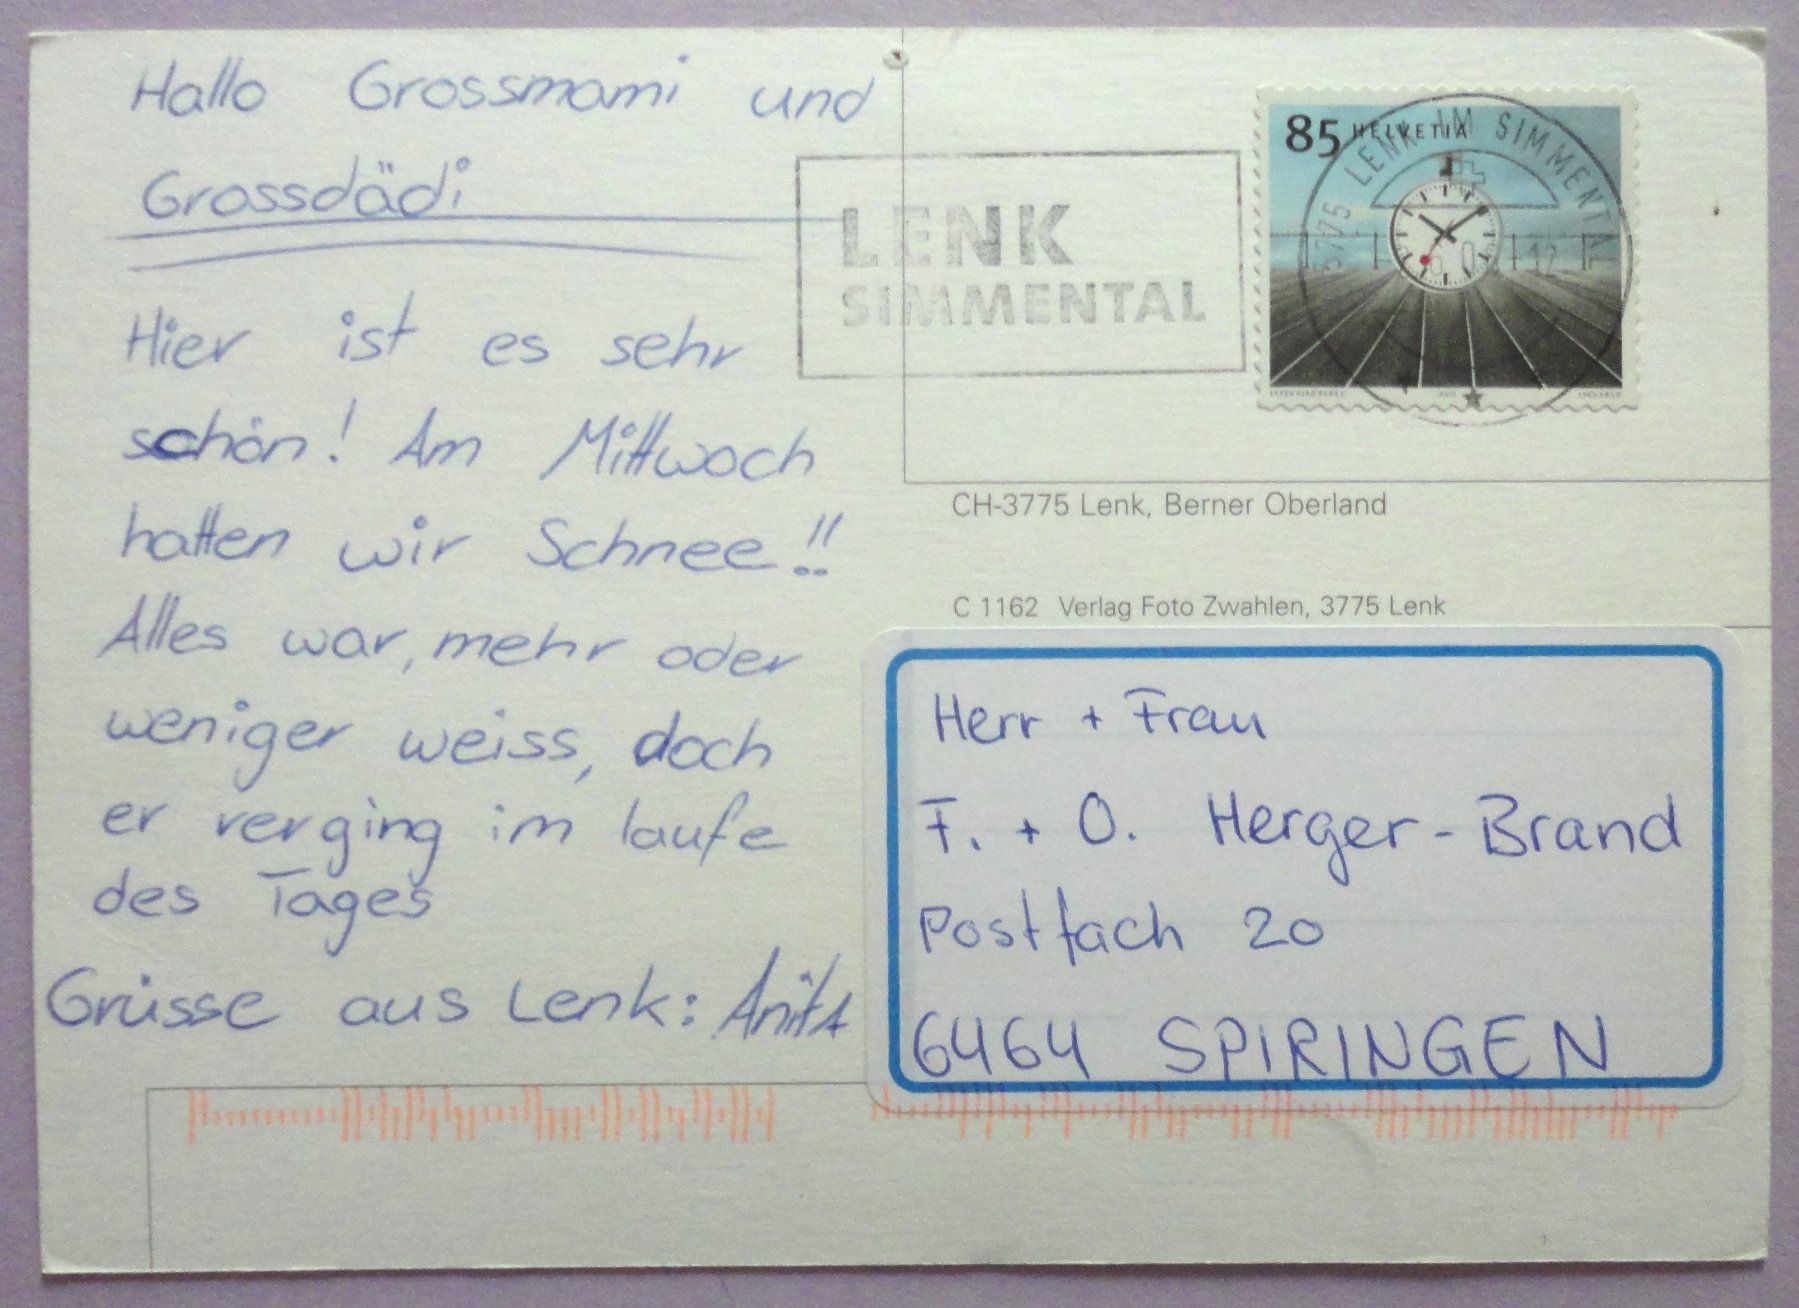 Hallo Grossmami und
Grossdädi
Hier ist es sehr
schön! Am Mittwoch
hatten wir Schnee!!
Alles war, mehr oder
weniger weiss, doch
er verging im laufe
des Tages
Grüsse aus Lenk: Anita
LENK
SIMMENTAL
85 HELVETIA
3775 LENK IM SIMMENTAL
CH-3775 Lenk, Berner Oberland
C 1162 Verlag Foto Zwahlen, 3775 Lenk
Herr + Frau
F. + O. Herger-Brand
Postfach 20
6464 SPIRINGEN